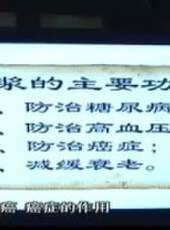 浆的主要功
、防治糖尿病
、防治高血压
、防治癌症；
、减缓衰老。
癌 癌症的作用